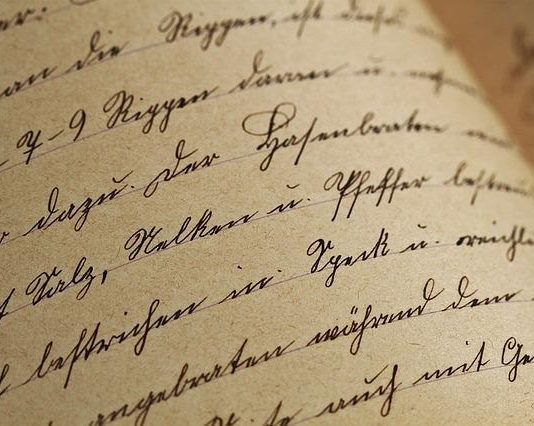 er.
an die Rippen, ist dieses
- 7 - 9 Rippen daran u.
dazu. Der Hasenbraten
Salz, Nelken u. Pfeffer bestreut
bestrichen in Speck u. reichl
angebraten während dem
auch mit Ge